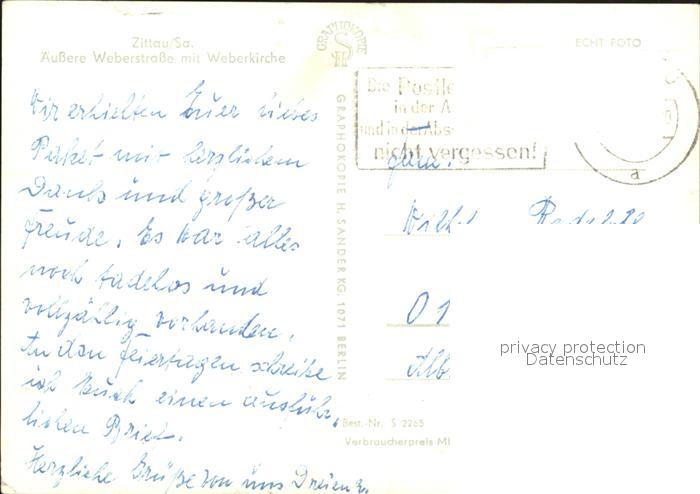 Zittau/Sa.
Äußere Weberstraße mit Weberkirche
Wir erhielten Euer liebes
Paket mit herzlichem
Dank und großer
Freude. Es war alles
noch tadelos und
vollzählig vorhanden.
In den Feiertagen schreibe
ich Euch einen ausführ-
lichen Brief.
Herzliche Grüße von uns Dreien
GRAPHOKOPIE
GRAPHOKOPIE H. SANDER KG. 1071 BERLIN
ECHT FOTO
Die Postle
in der A
und in der Abs
nicht vergessen!
a
Fam.
O1
Alb
privacy protection
Datenschutz
Best.-Nr. S 2265
Verbraucherpreis MI